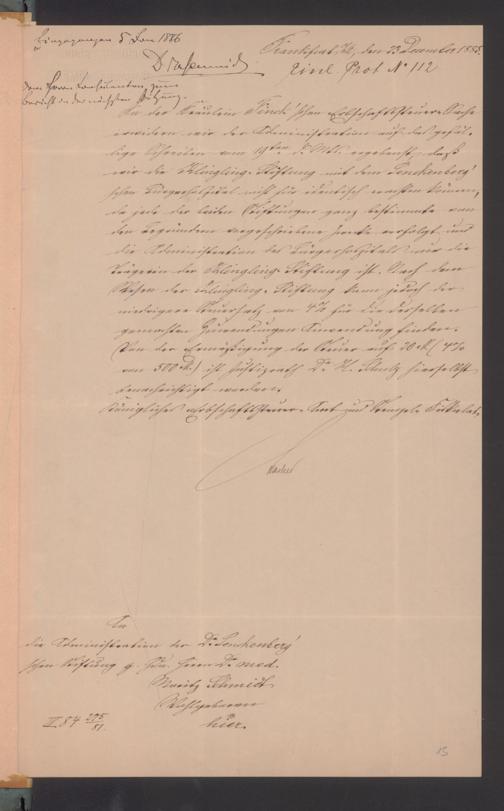 Eingegangen 5 Jan 1886
Dr M Schmidt
dem Herrn Consulenten zum
Bericht in der nächsten Sitzung.
Frankfurt a/M, den 23 December 1885.
Einl. Prot No 112
In der Fräulein Finck'schen Erbschaftssteuer-Sache
erwidern wir der Administration auf das gefäl-
lige Schreiben vom 19ten d. Mts. ergebenst, daß
wir die Klingling-Stiftung mit dem Senckenberg'
schen Bürgerhospital nicht für identisch erachten können,
da jede der beiden Stiftungen ganz bestimmte von
den Begründern vorgeschriebene Zwecke verfolgt und
die Administration des Bürgerhospitals nur die
Trägerin der Klingling-Stiftung ist. Nach dem
Wesen der Klingling-Stiftung kann jedoch der
niedrigere Steuersatz von 4% für die derselben
gemachten Zuwendungen Anwendung finden.
Von der Ermäßigung der Steuer auf 20 M (4%
von 500 M.) ist Justizrath Dr. H. hierselbst
benachrichtigt worden.
Königliches Erbschaftssteuer-Amt und Stempel-Fiskalat.
An
die Administration der Dr. Senckenberg'
schen Stiftung z. Hdn. Herrn Dr. med.
Moritz Schmidt
Wohlgeboren
hier.
II. 84 275/81.
15